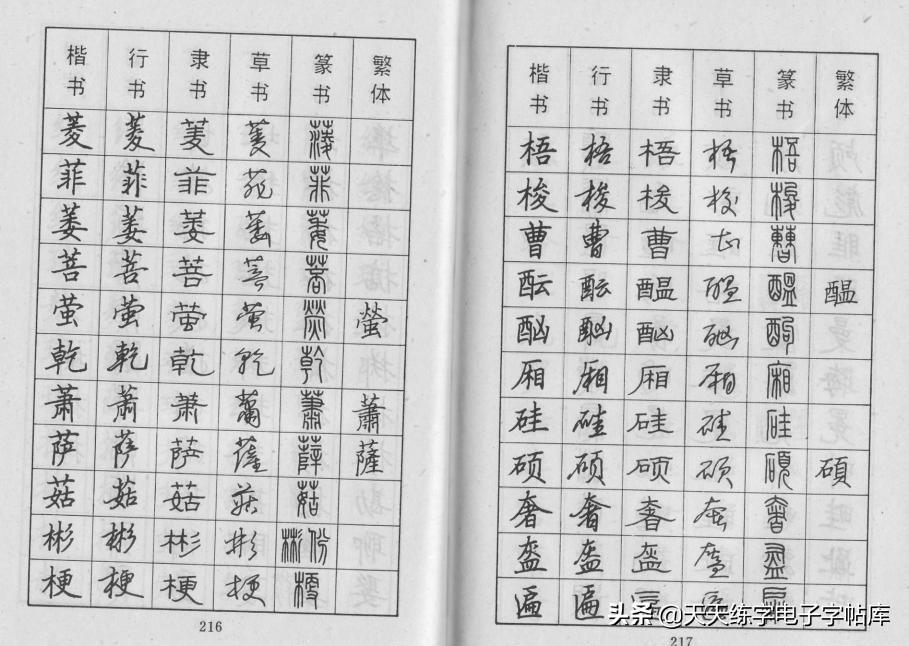 楷书 行书 隶书 草书 篆书 繁体
菱 菱 菱 菱 菱
菲 菲 菲 菲 菲
萎 萎 萎 萎 萎
菩 菩 菩 菩 菩
萤 萤 萤 萤 萤 螢
乾 乾 乾 乾 乾
萧 萧 萧 蕭 蕭 蕭
萨 萨 萨 薩 薛 薩
菇 菇 菇 菇 菇
彬 彬 彬 彬 彬份
梗 梗 梗 梗 梗
216
楷书 行书 隶书 草书 篆书 繁体
梧 梧 梧 梧 梧
梭 梭 梭 梭 梭
曹 曹 曹 曹 曹
酝 酝 醖 醖 醖 醖
酗 酗 酗 酗 酗
厢 厢 厢 厢 厢
硅 硅 硅 硅 硅
硕 硕 硕 硕 碩 碩
奢 奢 奢 奢 奢
盔 盔 盔 盔 盔
匾 匾 匾 匾 匾
217
头条 @天天练字电子字帖库